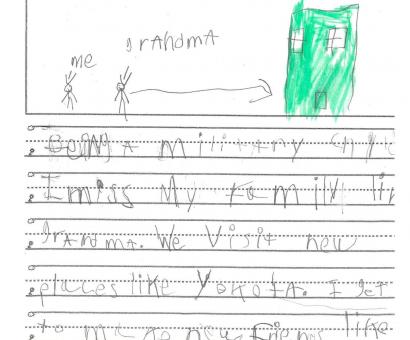 me grandma
Being a military chil
I miss my family li
grandma. We Visit new
places like Yokota. I get
to make new friends like